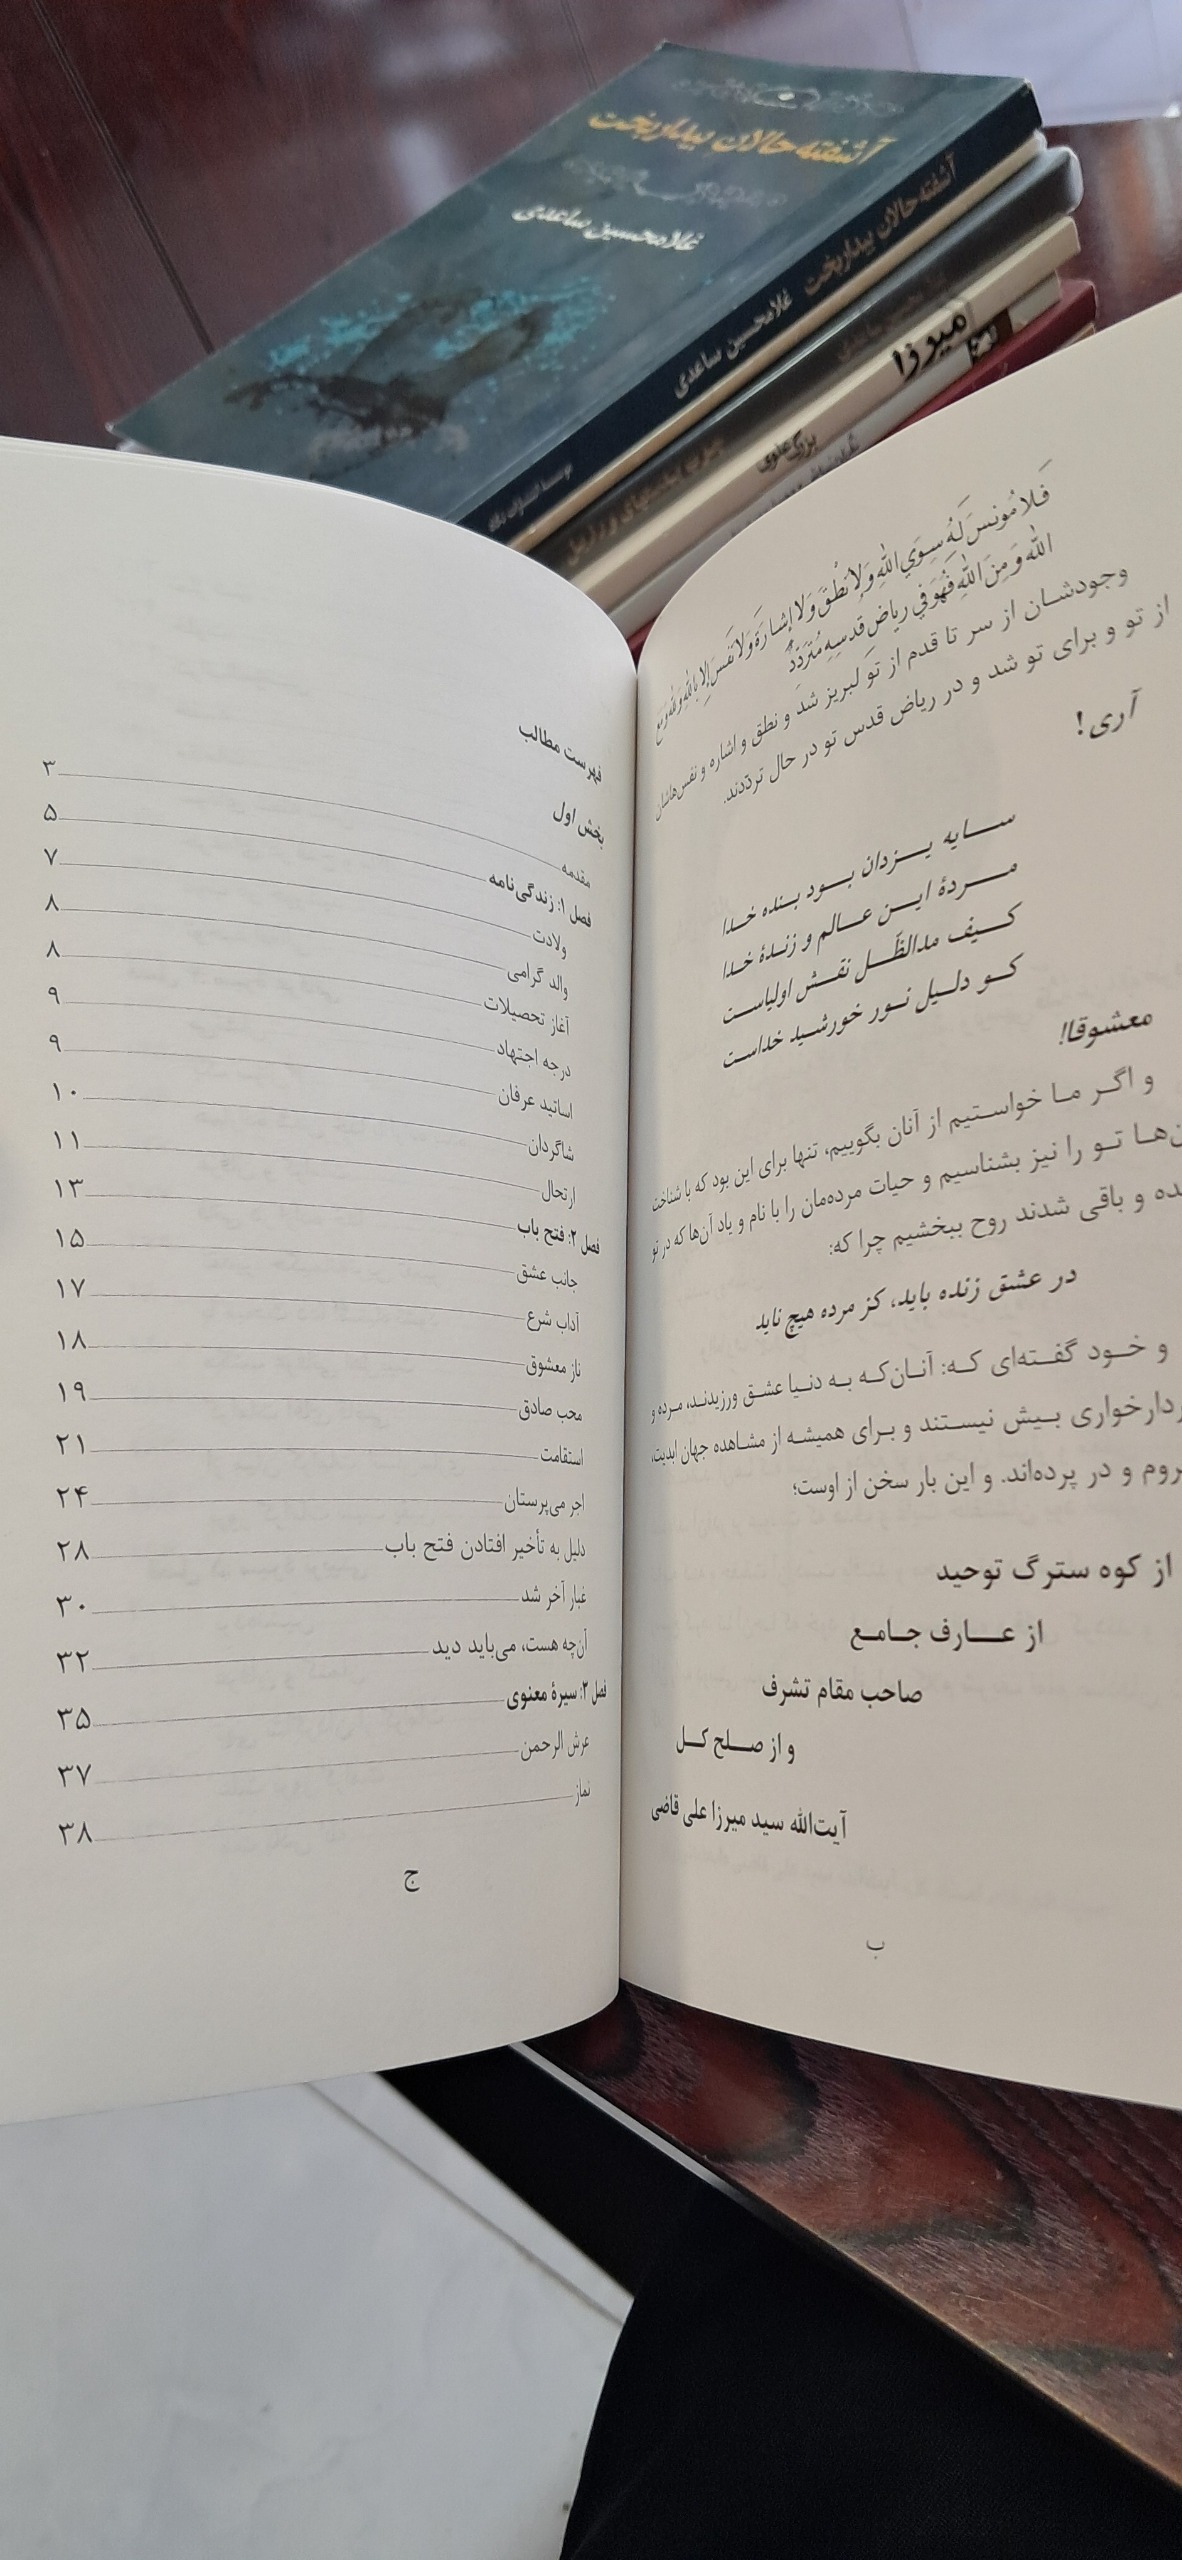 آشفته‌حالان بیداربخت
غلامحسین ساعدی
آشفته‌حالان بیداربخت
غلامحسین ساعدی
میرزا
بزرگ علوی
فَلا مُونسَ لَهُ سِوَي اللهِ وَ لا نُطْقَ وَ لا إشارَةَ وَ لا نَفَسَ إلا بِاللهِ وَ للهِ وَ مَعَ
اللهِ وَ مِنَ اللهِ فَهُوَ في رياضِ قدسِهِ مُتَردِّدٌ
وجودشان از سر تا قدم از تو لبریز شد و نطق و اشاره و نفس‌هاشان
از تو و برای تو شد و در ریاض قدس تو در حال تردّدند.
آری!
سایه یزدان بود بنده خدا
مردهٔ این عالم و زندهٔ خدا
کیف مدالظّل نقش اولیاست
کو دلیل نور خورشید خداست
معشوقا!
و اگر ما خواستیم از آنان بگوییم، تنها برای این بود که با شناخت
ن‌ها تو را نیز بشناسیم و حیات مرده‌مان را با نام و یاد آن‌ها که در تو
ده و باقی شدند روح ببخشیم چرا که:
در عشق زنده باید، کز مرده هیچ ناید
و خود گفته‌ای که: آنان‌که به دنیا عشق ورزیدند، مرده و
ردارخواری بیش نیستند و برای همیشه از مشاهده جهان ابدیت،
روم و در پرده‌اند. و این بار سخن از اوست؛
از کوه سترگ توحید
از عارف جامع
صاحب مقام تشرف
و از صلح کل
آیت‌الله سید میرزا علی قاضی
ب
فهرست مطالب
بخش اول
مقدمه ۳
فصل ۱: زندگی‌نامه ۵
ولادت ۷
والد گرامی ۸
آغاز تحصیلات ۸
درجه اجتهاد ۹
اساتید عرفان ۹
شاگردان ۱۰
ارتحال ۱۱
فصل ۲: فتح باب ۱۳
جانب عشق ۱۵
آداب شرع ۱۷
ناز معشوق ۱۸
محب صادق ۱۹
استقامت ۲۱
اجر می‌پرستان ۲۴
دلیل به تأخیر افتادن فتح باب ۲۸
غبار آخر شد ۳۰
آن‌چه هست، می‌باید دید ۳۲
فصل ۳: سیرهٔ معنوی ۳۵
عرش الرحمن ۳۷
نماز ۳۸
ج